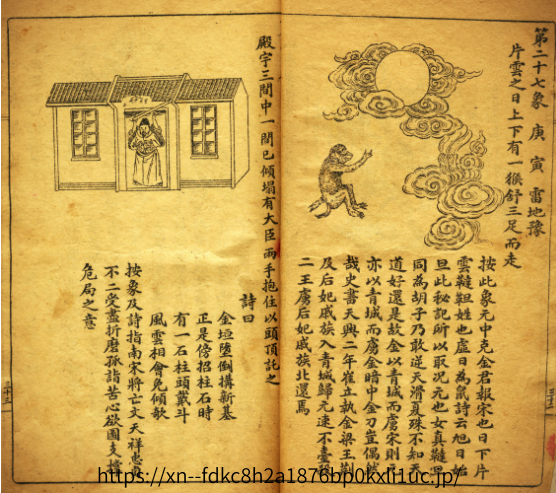 第二十七象 庚 寅 雷地豫
片雲之日上下有一猴舒三足而走
按此象元中克金君報宋也日下片
雲韃靼姓也虛日為鼠詩云旭日始
旦此秘記所以取況元也女真韃
同為胡子乃敢逆天滑夏殊不知天
道好還是故金以青城而虜宋則元
亦以青城而虜金暗中金刀豈偶然
哉史書天興二年崔立執金梁王荊
及后妃戚族入青城歸元速不臺
二王虜后妃戚族北還焉
殿宇三間中一間已傾塌有大臣兩手抱住以頭頂託之
詩曰
金垣墮倒搆新基
正是傍招柱石時
有一石柱頭戴斗
風雲相會免傾欹
按象及詩指南宋將亡文天祥忠貞
不二受盡折磨孤詣苦心欲圖支撐
危局之意
https://xn--fdkc8h2a1876bp0kxl1uc.jp/